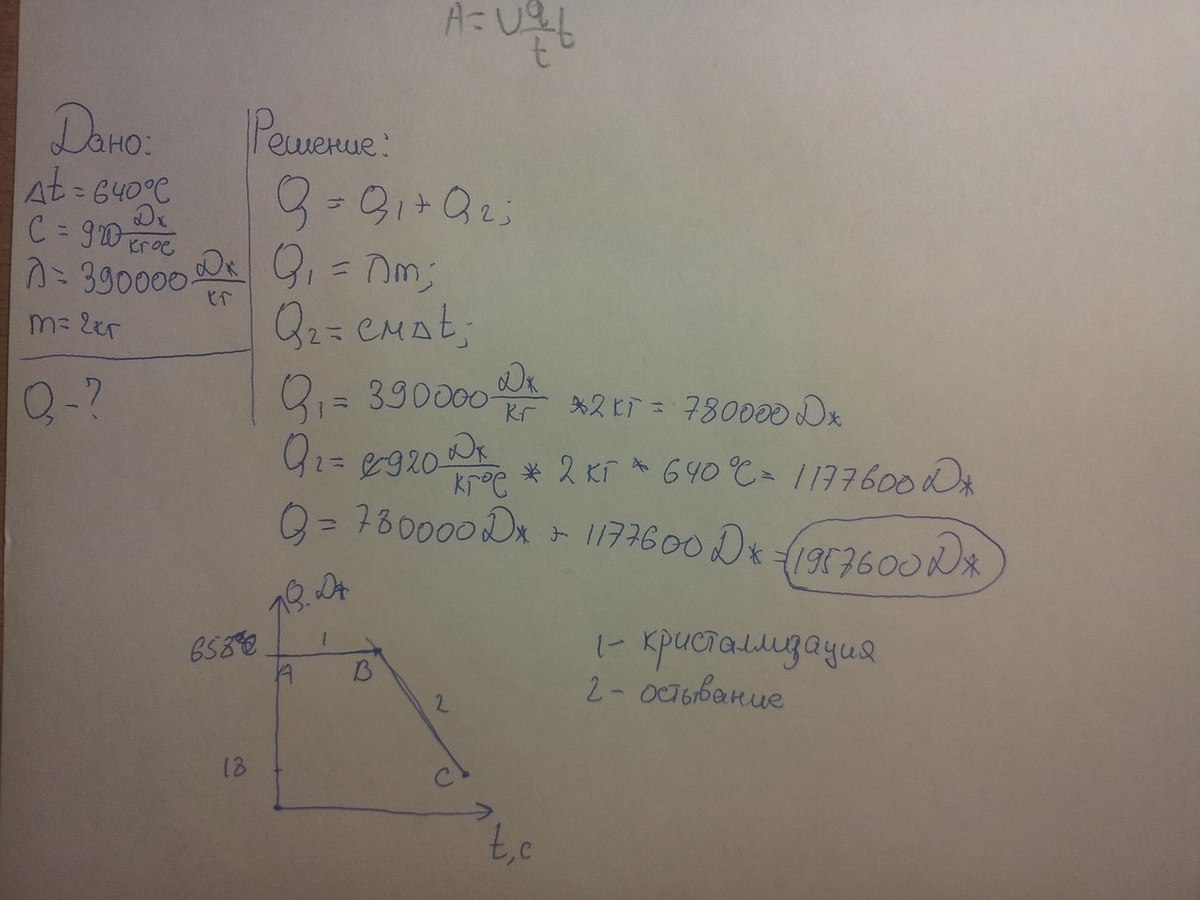 A = U q/t t
Дано:
Δt = 640°C
C = 920 Дж/кг°C
λ = 390000 Дж/кг
m = 2кг
Q - ?
Решение:
Q = Q1 + Q2;
Q1 = λm;
Q2 = cмΔt;
Q1 = 390000 Дж/кг * 2 кг = 780000 Дж
Q2 = 920 Дж/кг°C * 2 кг * 640 °C = 1177600 Дж
Q = 780000 Дж + 1177600 Дж = 1957600 Дж
Q, Дж
658
1
A
B
2
18
C
t, c
1 - кристаллизация
2 - остывание